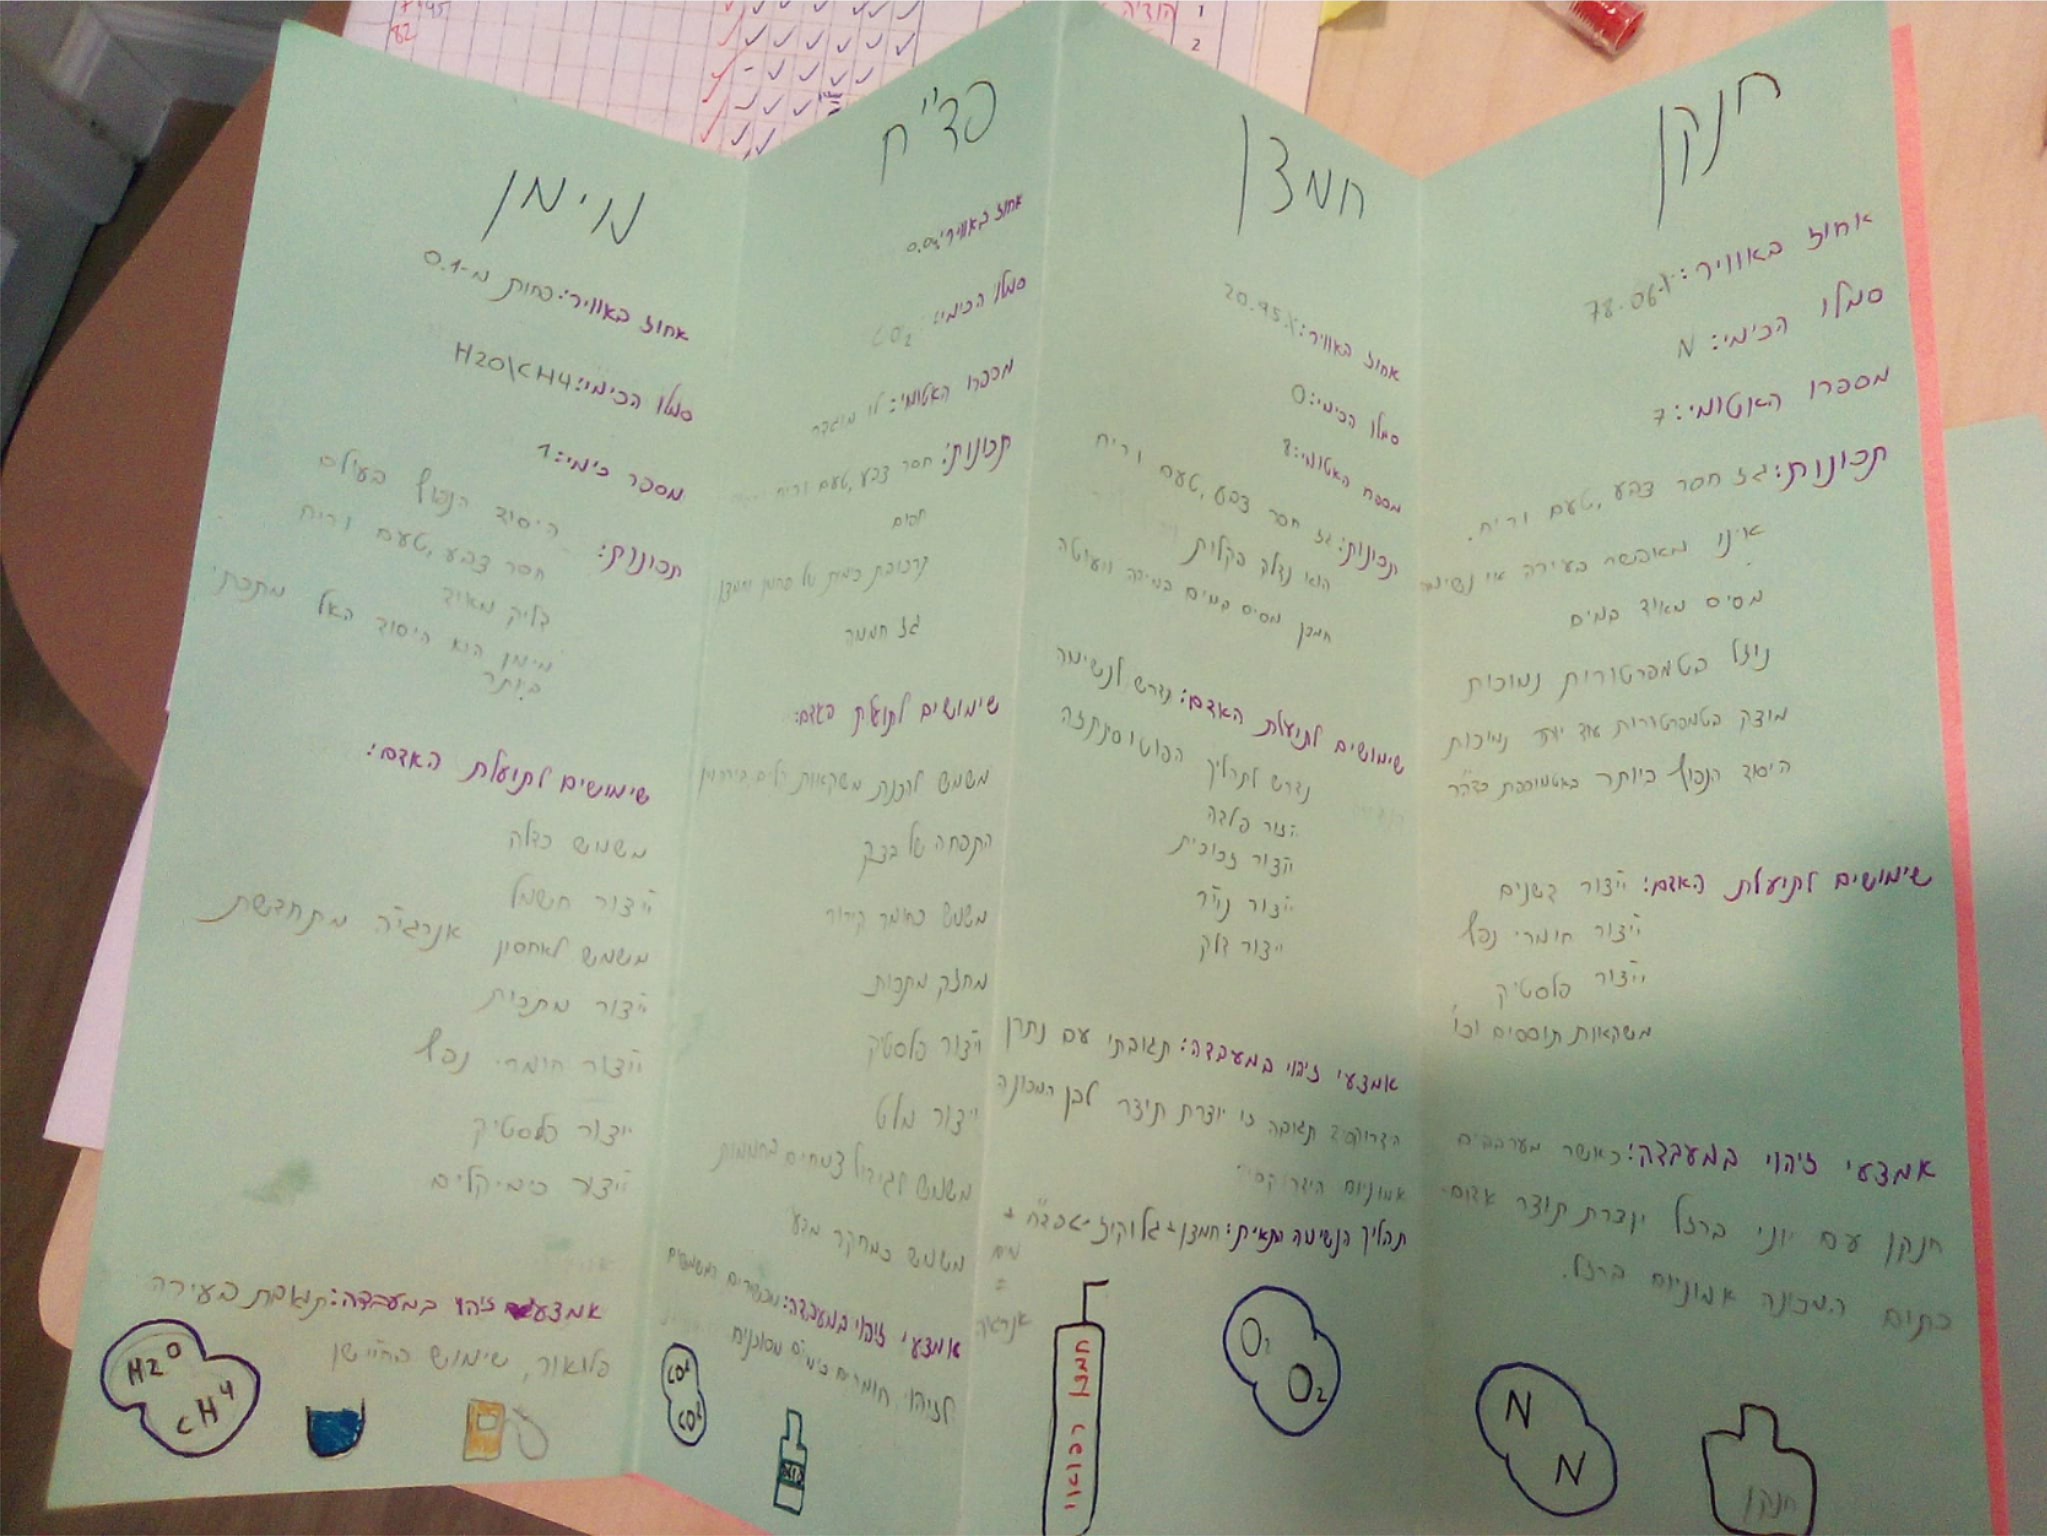 חנקן
אחוז באוויר: 78.06%
סמלו הכימי: N
מספרו האטומי: 7
תכונות: גז חסר צבע, טעם וריח.
אינו מאפשר בעירה או נשימה
מסיס מאוד במים
נוזל בטמפרטורות נמוכות
מוצק בטמפרטורות עוד יותר נמוכות
היסוד הנפוץ ביותר באטמוספרת כדה"א
שימושים לתועלת האדם: ייצור דשנים
ייצור חומרי נפץ
ייצור פלסטיק
משקאות תוססים וכו'
אמצעי זיהוי במעבדה: כאשר מערבבים
חנקן עם יוני ברזל יוצרת תוצר אדום
כתום המכונה אמוניום ברזל.
N
N
חנקן
חמצן
אחוז האוויר: 20.95%
סמלו הכימי: O
מספרו האטומי: 8
תכונות: גז חסר צבע, טעם וריח
הוא נדלק בקלות
חמצן מסיס במים במידה מועטה
שימושים לתועלת האדם: נדרש לנשימה
נדרש לתהליך הפוטוסינתזה
ייצור פלדה
ייצור זכוכית
ייצור נייר
ייצור דלק
אמצעי זיהוי במעבדה: תגובתו עם נתרן
הידרוקסיד תגובה זו יוצרת תוצר לבן המכונה
אמוניום הידרוקסיד
תהליך הנשימה התאית: חמצן + גלוקוז → פד"ח +
מים
=
אנרגיה
חמצן רפואי
O2
O2
פד"ח
אחוז באוויר: 0.04
סמלו הכימי: CO2
מספרו האטומי: לו מוגדר
תכונות: חסר צבע, טעם וריח
חסים
תרכובת כימית של פחמן וחמצן
גז חממה
שימושים לתועלת האדם:
משמש להכנת משקאות קלים,
התפחה של בצק
משמש כחומר קירור
מחזק מתכות
ייצור פלסטיק
ייצור מלט
משמש לגידול צמחים בחממות
משמש כמחקר מדעי
אמצעי זיהוי במעבדה: מכשירים המשמשים
לזיהוי חומרים כימיים מסוכנים
CO2
CO2
מימן
אחוז באוויר: פחות מ-0.1
סמלו הכימי: H2O\CH4
מספר כימי: 1
תכונות: היסוד הנפוץ בעולם
חסר צבע, טעם וריח
דליק מאוד
מימן הוא היסוד האל מתכתי
ביותר
שימושים לתועלת האדם:
משמש כדלק
ייצור חשמל
משמש לאחסון אנרגיה מתחדשת
ייצור מתכות
ייצור חומרי נפץ
ייצור פלסטיק
ייצור כימיקלים
אמצעי זיהוי במעבדה: תגובת בעירה
פלואור, שימוש בחיישן
H2O
CH4
82
1
2